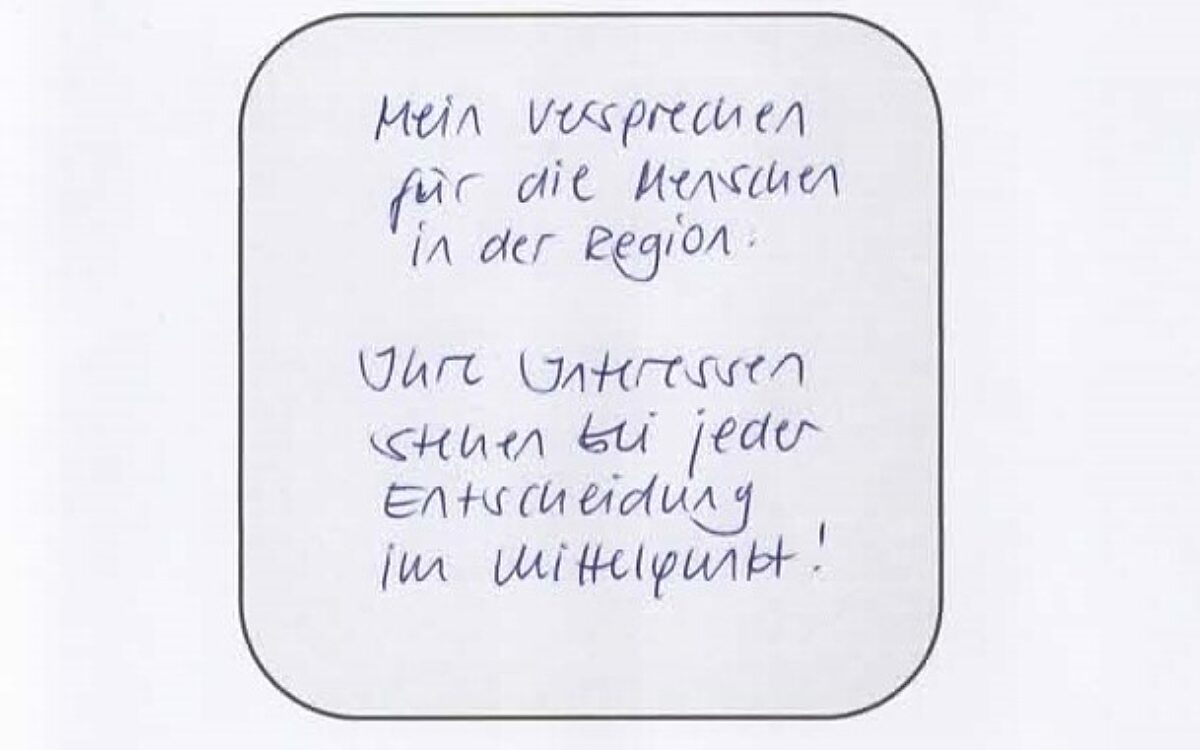 Mein Versprechen
für die Menschen
in der Region:
Ihre Interessen
stehen bei jeder
Entscheidung
im Mittelpunkt!